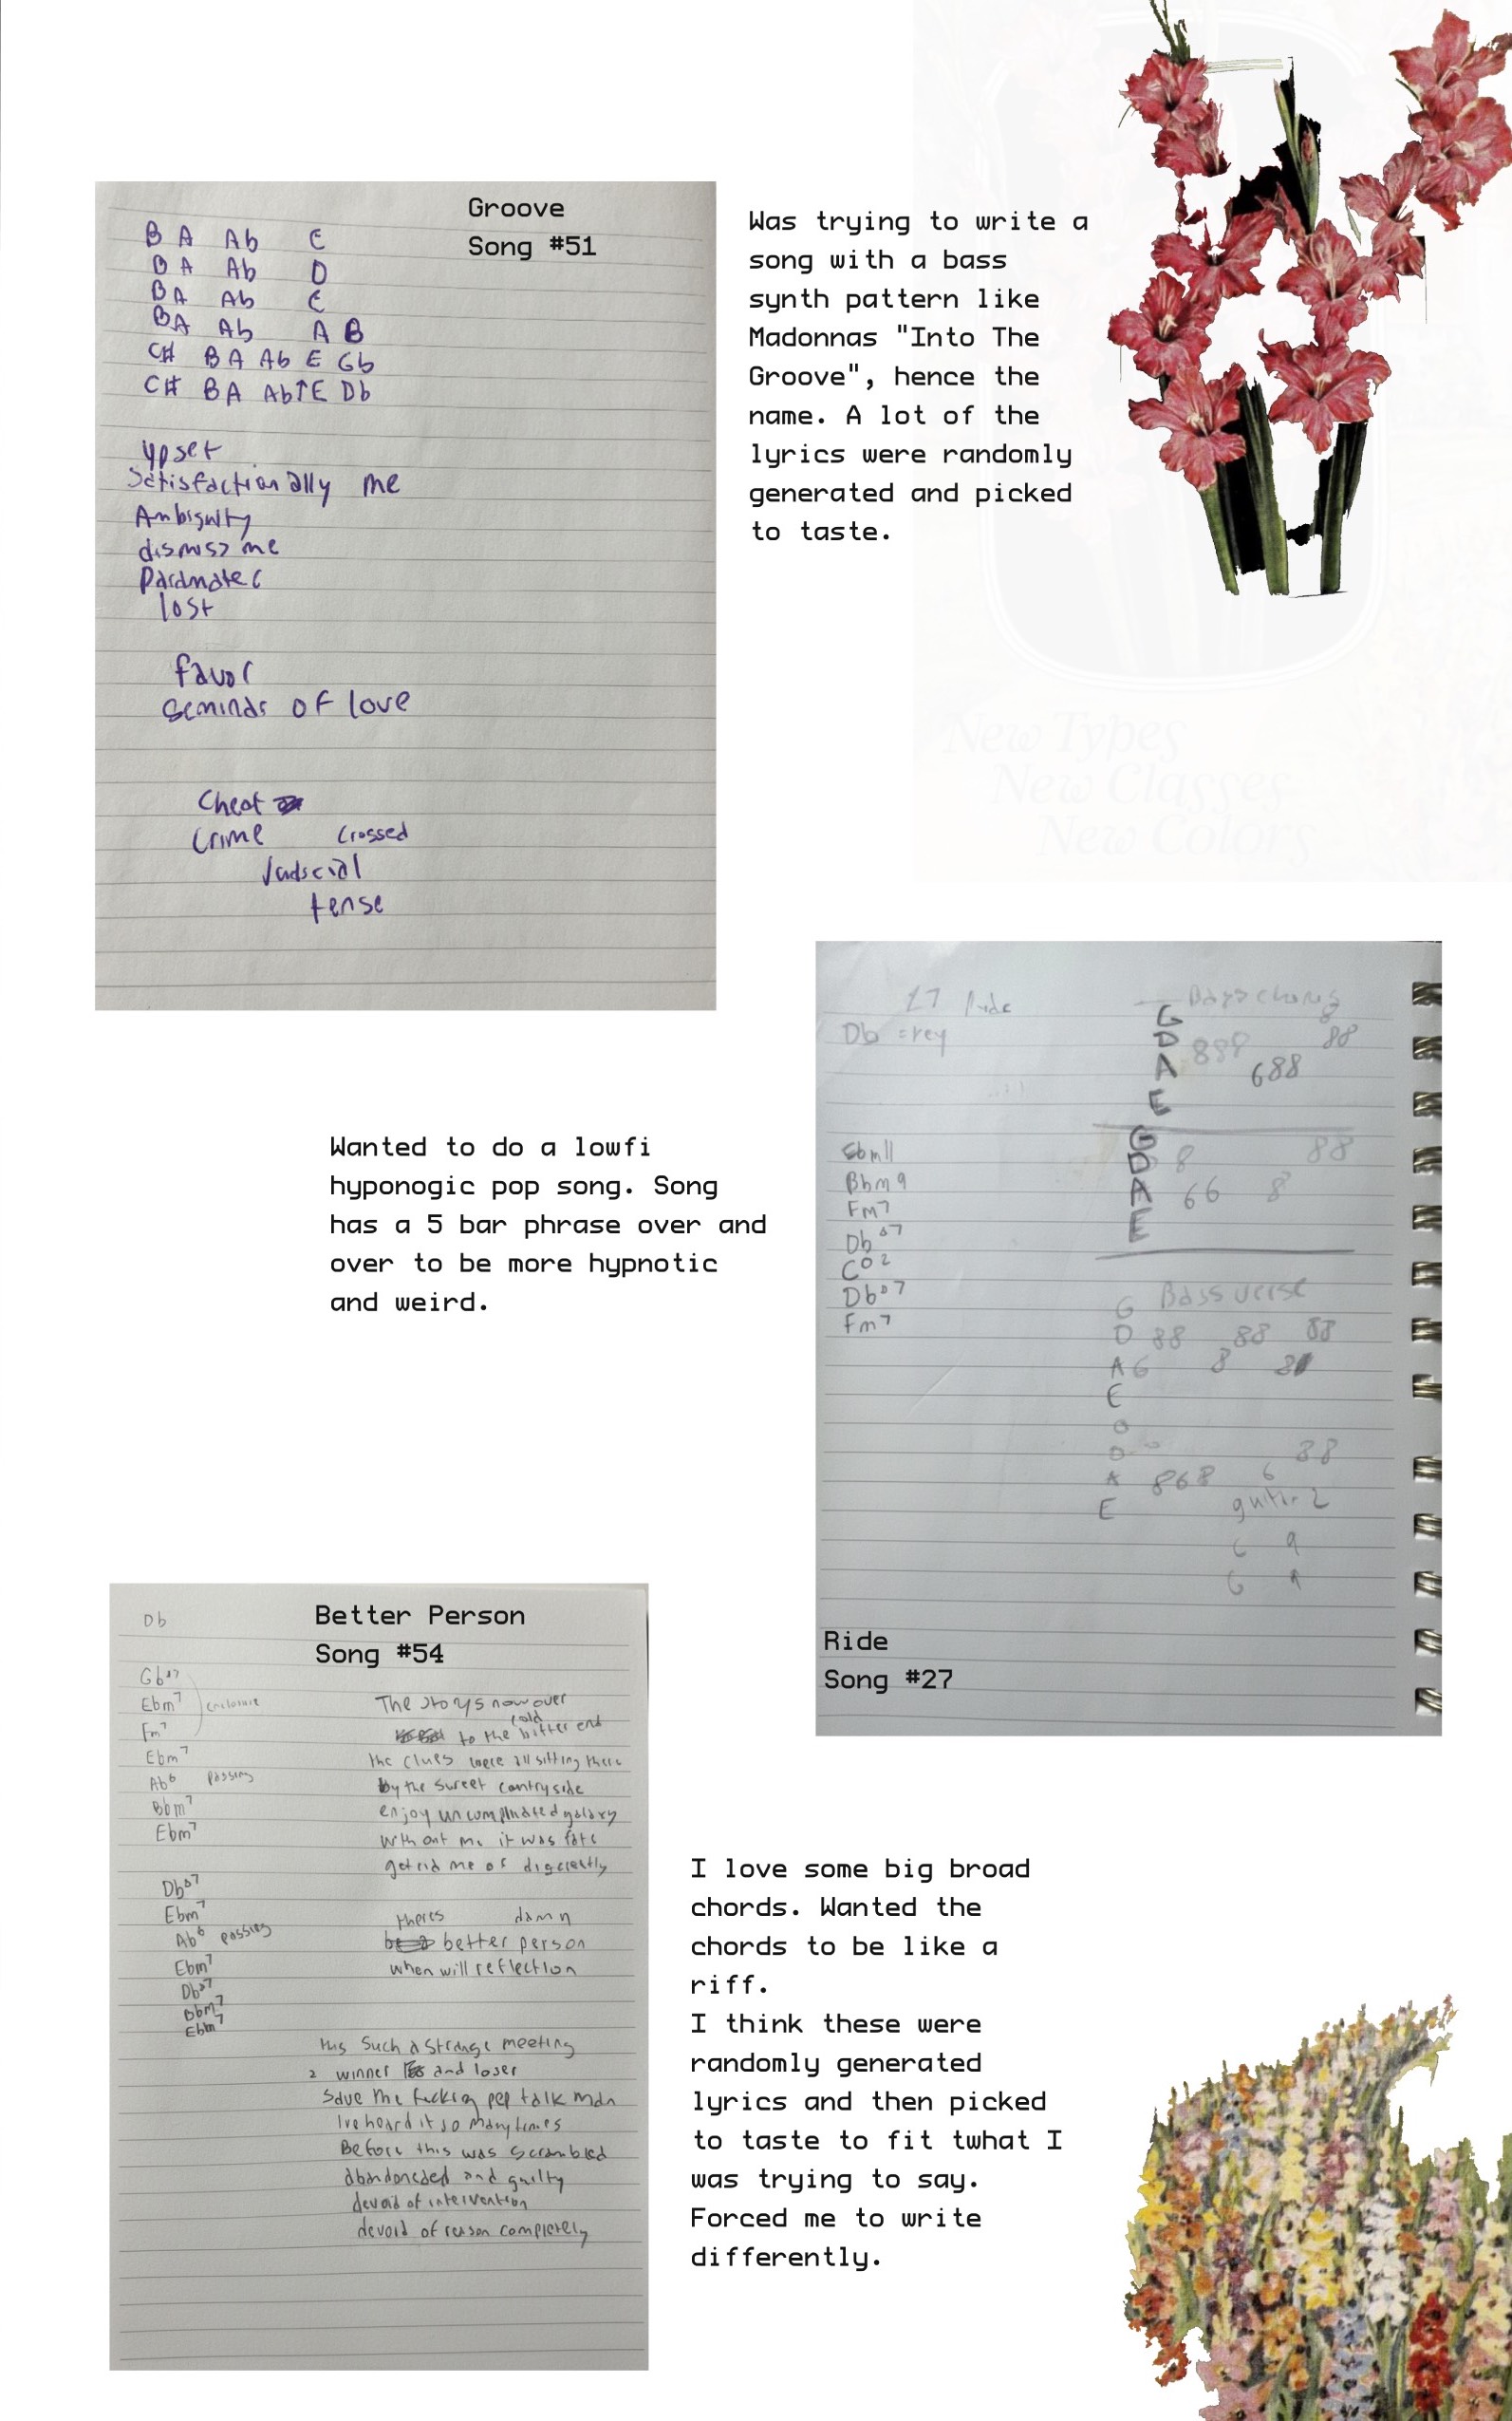 Groove
Song #51
B A Ab E
B A Ab D
B A Ab E
B A Ab A B
C# B A Ab E Gb
C# B A Ab↑E Db
upset
Satisfactionally me
Ambiguity
dismiss me
lost
favor
of love
Cheat
Crime Crossed
tense
Was trying to write a
song with a bass
synth pattern like
Madonnas "Into The
Groove", hence the
name. A lot of the
lyrics were randomly
generated and picked
to taste.
New Types
New Classes
New Colors
27 Ride
Db = key
Ebm11
Bbm9
Fm7
DbΔ7
Co2
DbΔ7
Fm7
G
D 888 88
A 688
E
G
D 8 88
A 66 8
E
Bass verse
G
D 88 88 88
A 6 8
E
88
A 868 6
E
Ride
Song #27
Wanted to do a lowfi
hyponogic pop song. Song
has a 5 bar phrase over and
over to be more hypnotic
and weird.
Better Person
Song #54
Db
GbΔ7
Ebm7 enclosure
Fm7
Ebm7
Ab6 passing
Bbm7
Ebm7
DbΔ7
Ebm7
Ab6 passing
Ebm7
DbΔ7
Bbm7
Ebm7
The storys now over
cold
to the bitter end
the clues were all sitting there
by the sweet contryside
enjoy galaxy
without me it was fate
get rid me of
theres damn
better person
when will reflection
this such a strange meeting
2 winner and loser
Save the fucking pep talk man
Ive heard it so many times
Before this was scrambled
and guilty
devoid of intervention
devoid of reason completely
I love some big broad
chords. Wanted the
chords to be like a
riff.
I think these were
randomly generated
lyrics and then picked
to taste to fit twhat I
was trying to say.
Forced me to write
differently.